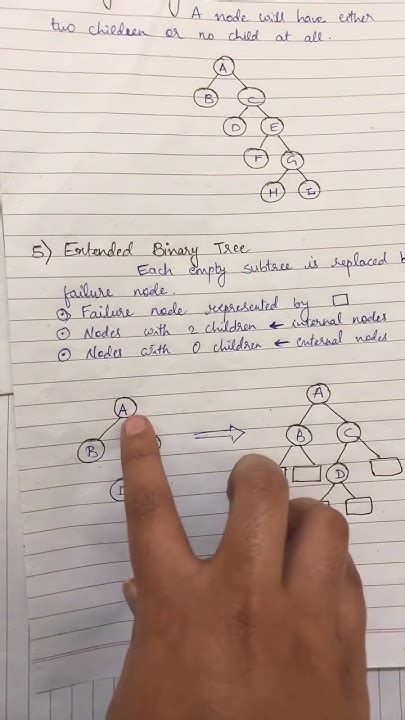 A node will have either
two children or no child at all.
A
B C
D E
F G
H I
5) Extended Binary Tree
Each empty subtree is replaced
failure node.
Failure node represented by
Nodes with 2 children ← internal nodes
Nodes with 0 children ← external nodes
A A
B B C
D